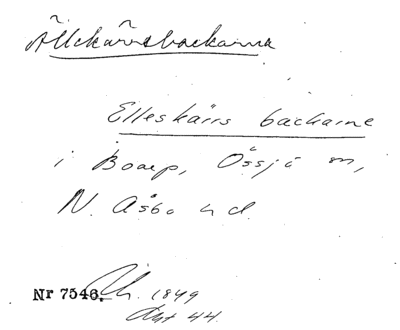 Ällekärrsbackarna
Elleskärrs backarne
i Boarp, Össjö sn,
N. Åsbo hd.
Nr 7546. 1849
Akt 44.